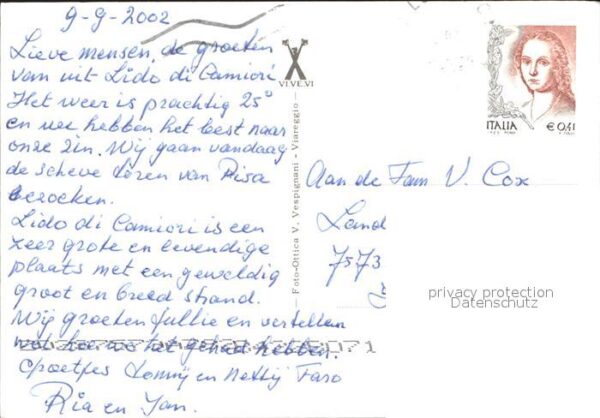 9-9-2002
Lieve mensen, de groeten
van uit Lido di Camiori
Het weer is prachtig 25°
en we hebben het best naar
onze zin. Wij gaan vandaag
de scheve toren van Pisa
bezoeken.
Lido di Camiori is een
zeer grote en levendige
plaats met een geweldig
groot en breed strand.
Wij groeten jullie en vertellen
wel hoe we het gehad hebben.
Groetjes en Netty
Ria en Jan.
VI.VE.VI
Foto-Ottica V. Vespignani - Viareggio
ITALIA
€ 0,41
Aan de Fam V. Cox
Land
7573
privacy protection
Datenschutz
071